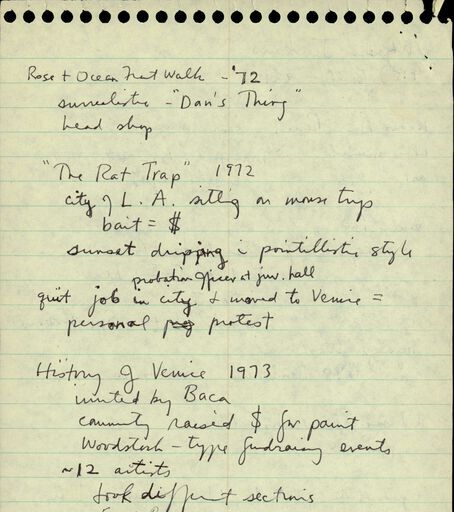 Rose + Ocean Front Walk - '72
surrealistic - "Dan's Thing"
head shop
"The Rat Trap" 1972
city of L. A. sitting on mouse trap
bait = $
sunset dripping in pointillistic style
probation officer at juv. hall
quit job in city + moved to Venice =
personal protest
History of Venice 1973
invited by Baca
community raised $ for paint
Woodstock - type fundraising events
~12 artists
took different sections